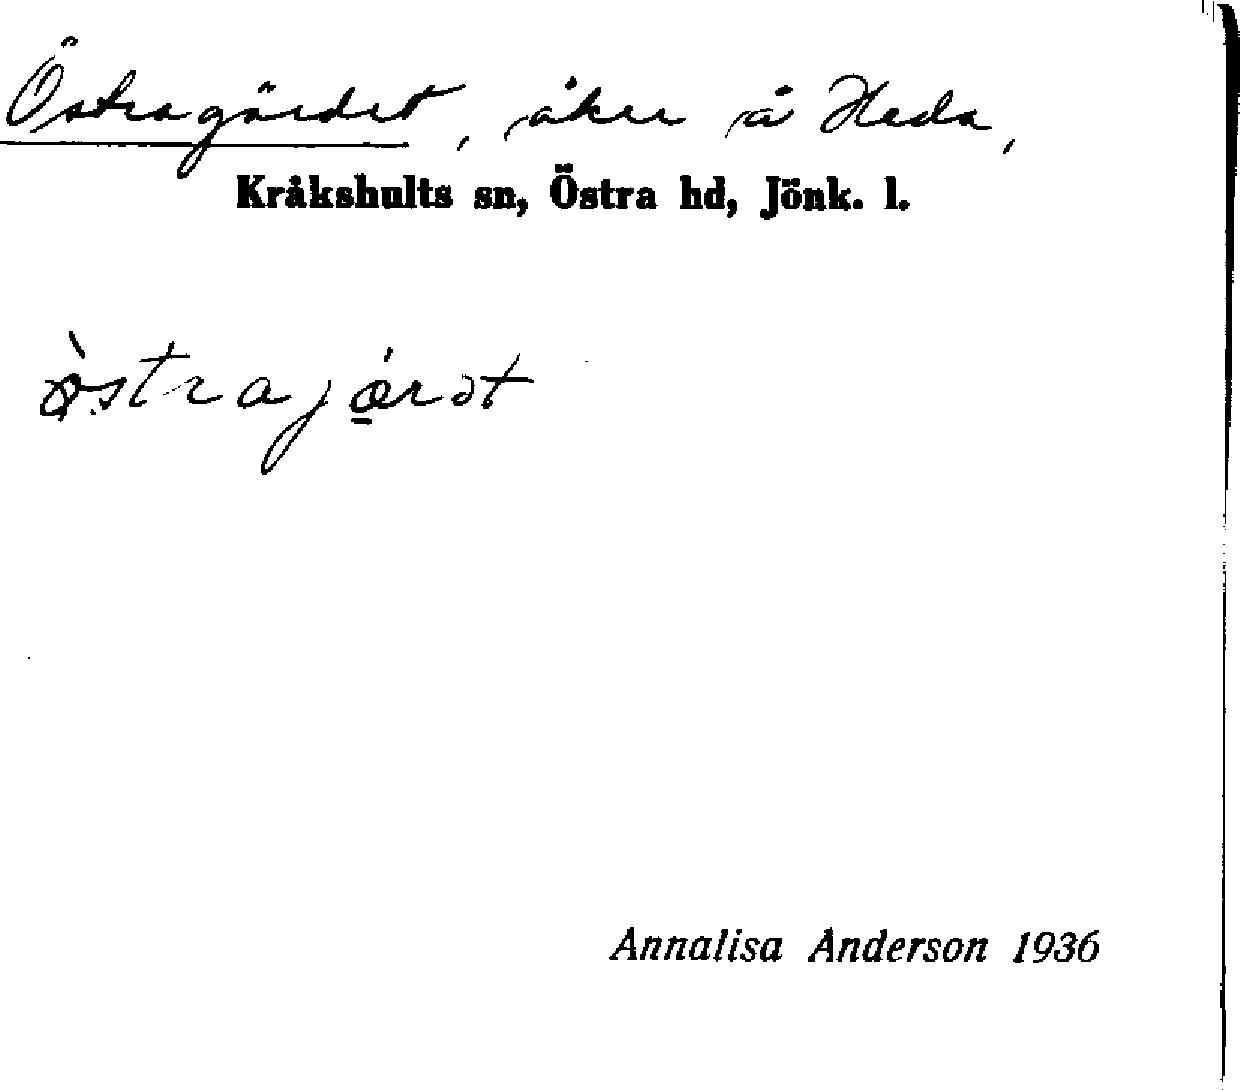 Östragärdet, åker å Heda,
Kråkshults sn, Östra hd, Jönk. l.
ö̀strajǽ̠rət
Annalisa Anderson 1936